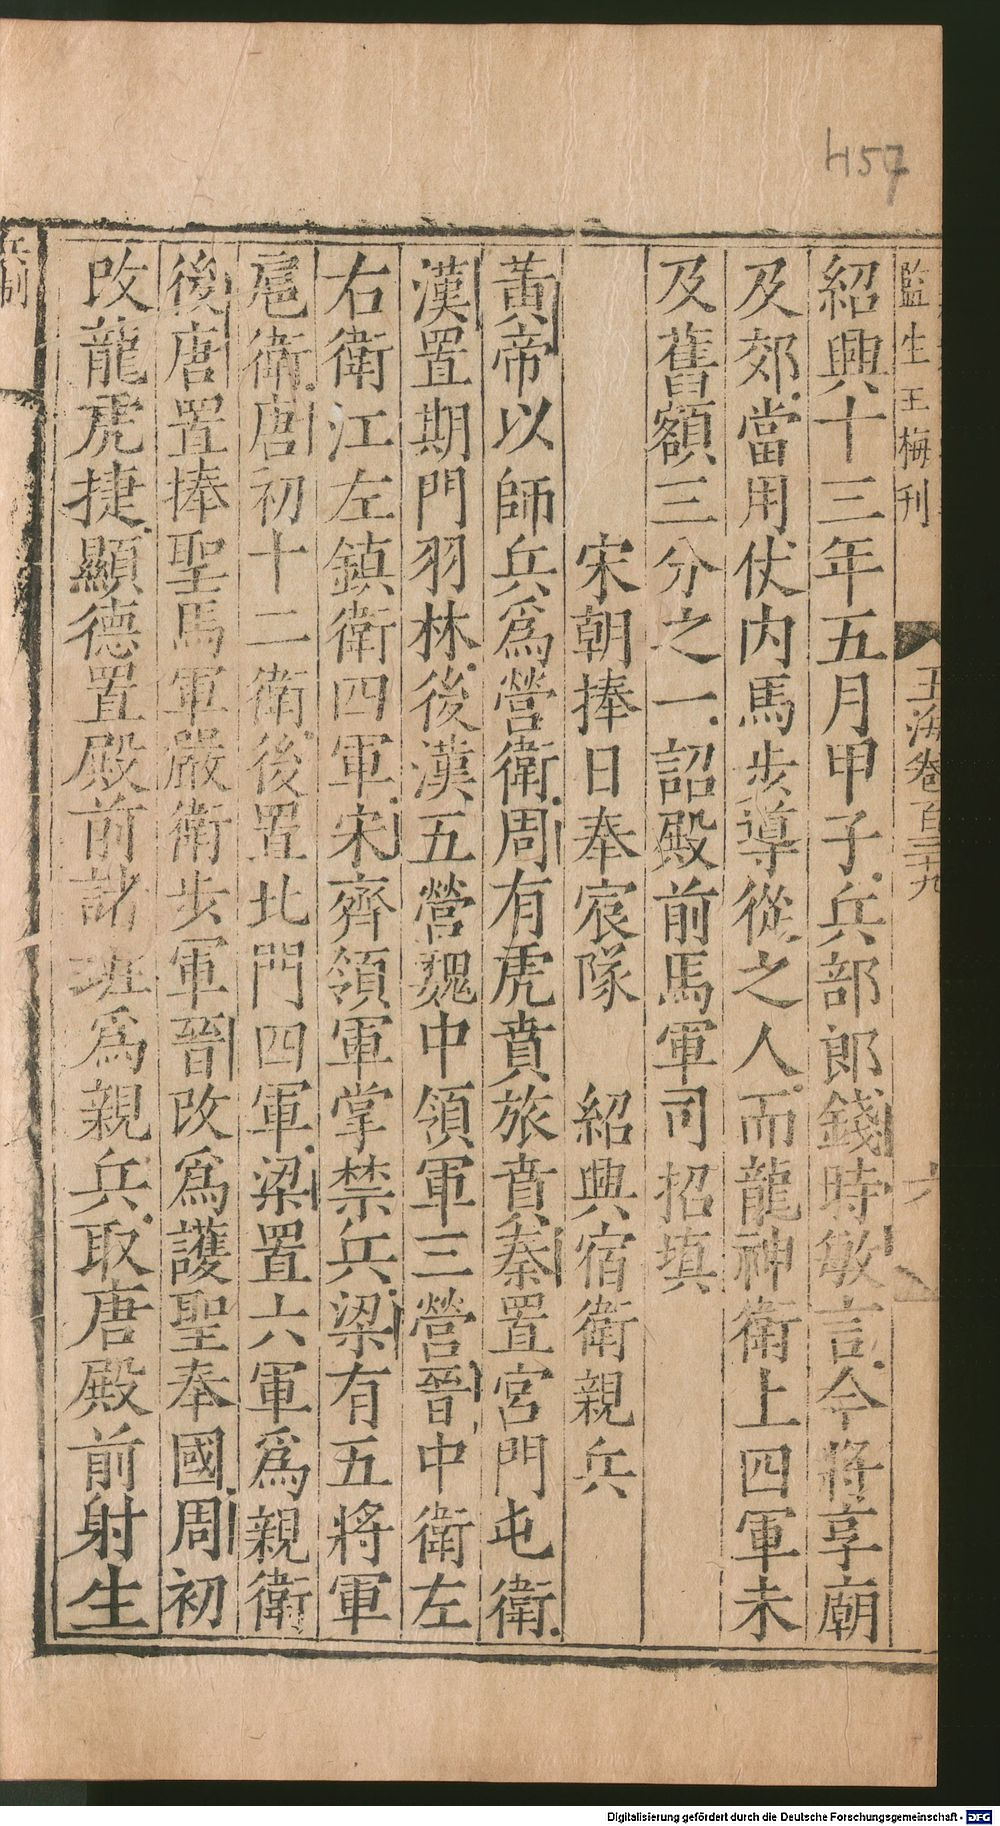 H57
監生王梅刊
玉海卷百三十九
六
紹興十三年五月甲子兵部郎錢時敏言今將享廟
及郊當用仗內馬步導從之人而龍神衛上四軍未
及舊額三分之一詔殿前馬軍司招填
宋朝捧日奉宸隊 紹興宿衛親兵
黃帝以師兵爲營衛周有虎賁旅賁秦置宮門屯衛
漢置期門羽林後漢五營魏中領軍三營晉中衛左
右衛江左鎮衛四軍宋齊領軍掌禁兵梁有五將軍
扈衛唐初十二衛後置北門四軍梁置六軍爲親衛
後唐置捧聖馬軍嚴衛步軍晉改爲護聖奉國周初
改龍虎捷顯德置殿前諸班爲親兵取唐殿前射生
兵制
Digitalisierung gefördert durch die Deutsche Forschungsgemeinschaft - DFG